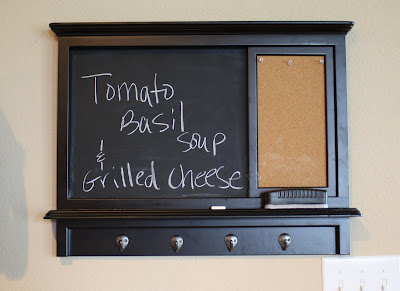 Tomato
Basil
Soup
&
Grilled Cheese